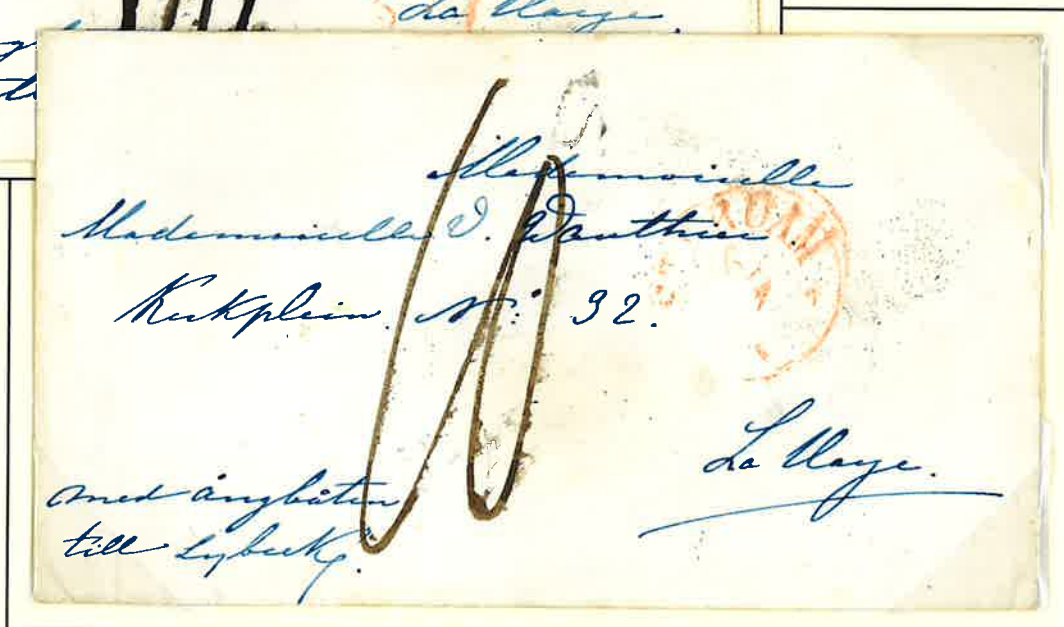 La Haye
Mademoiselle
Mademoiselle V. Wauthier.
Kerkplein. N: 32.
La Haye.
med ångbåten
till Lybeck.